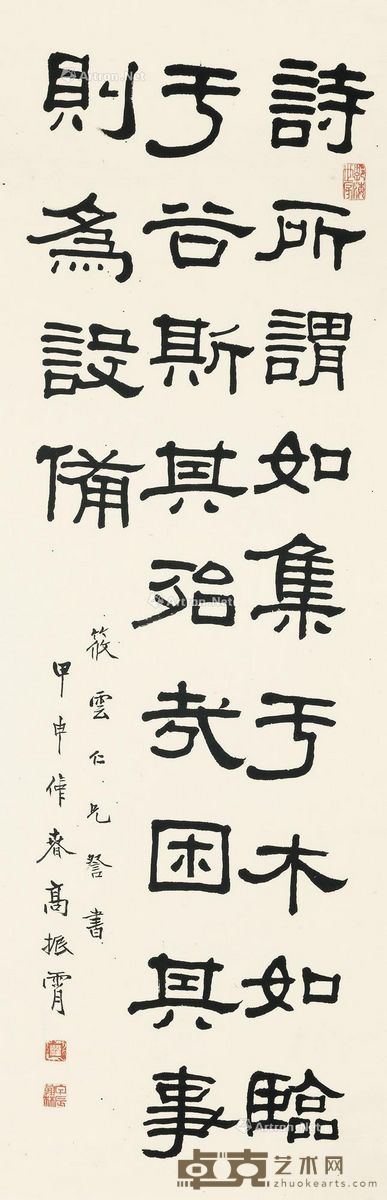 詩所謂如集于木如臨
于谷斯其殆哉困其事
則為設備
筱雲仁兄詧書
甲申仲春高振霄
卓克艺术网
zhuokearts.com
Artron.Net